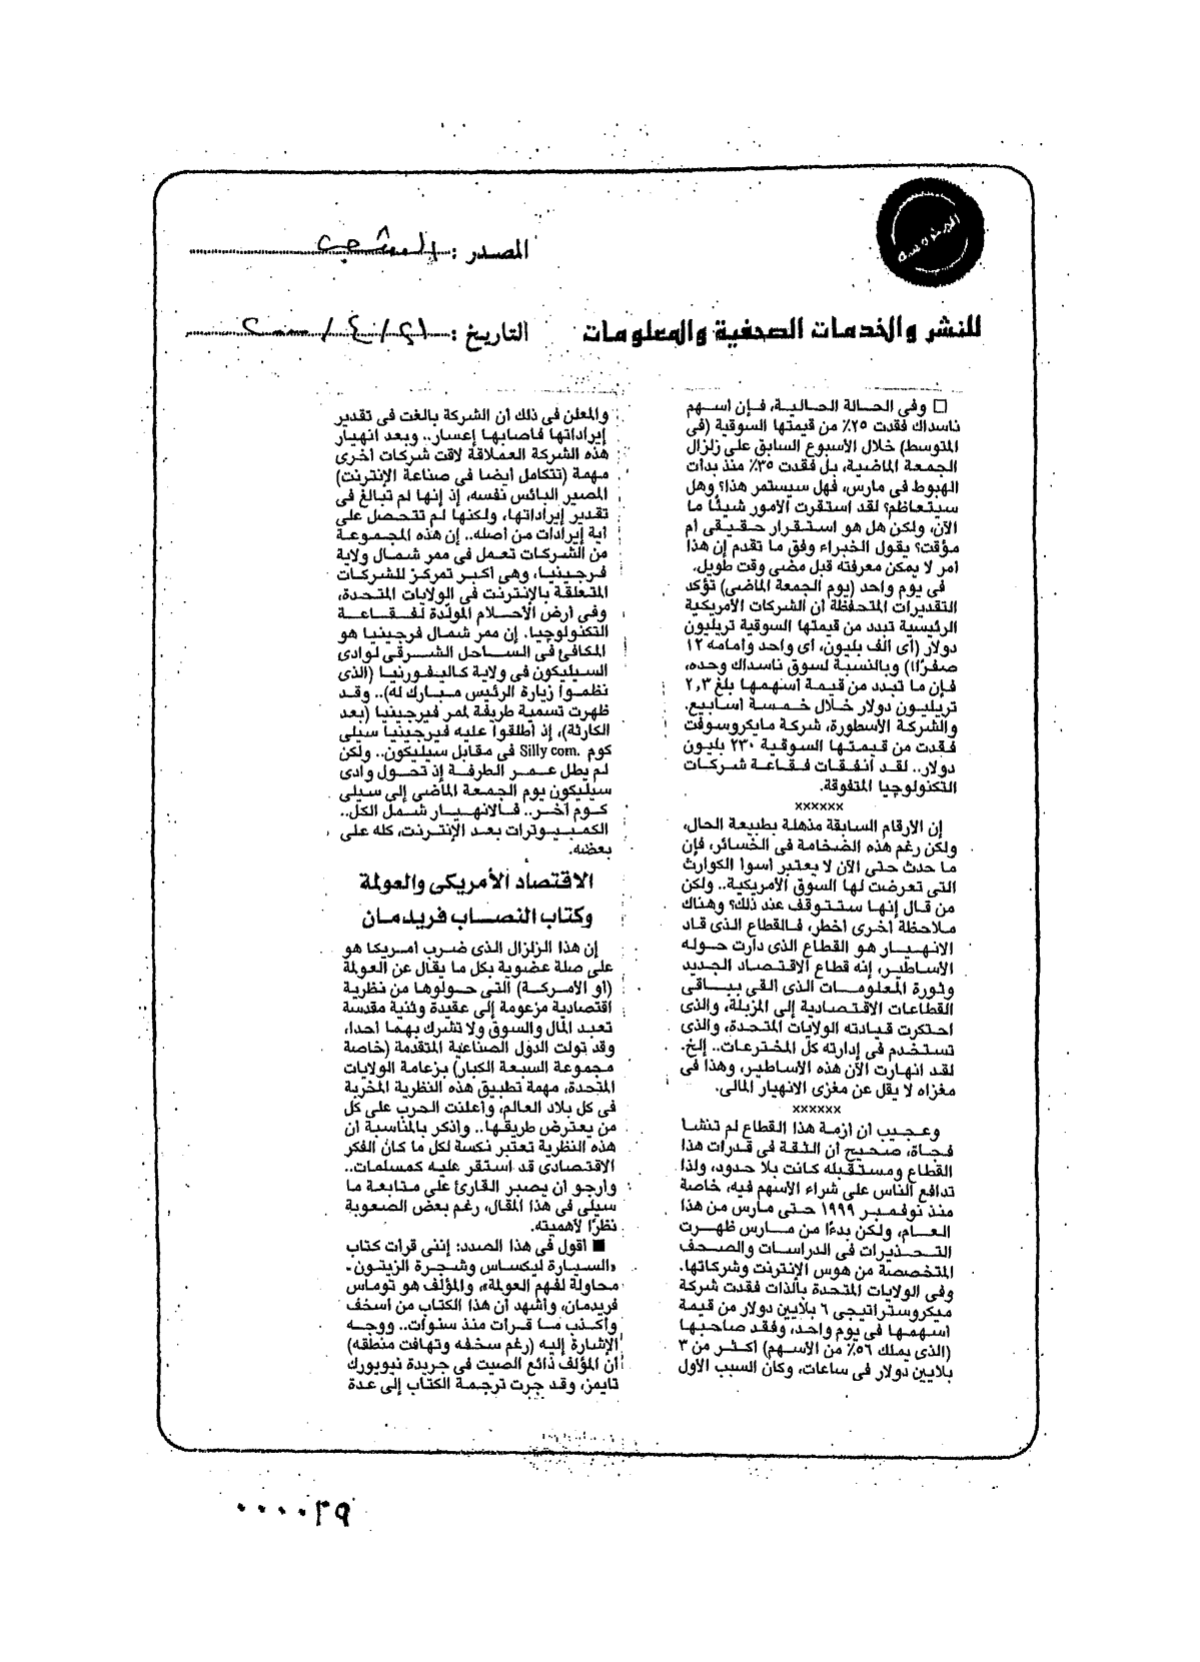 المصدر : الشعب
للنشر والخدمات الصحفية والمعلومات
التاريخ : ٢١ / ٤ / ٢٠٠٠
□ وفى الحالة الحالية، فإن أسهم
ناسداك فقدت ٢٥٪ من قيمتها السوقية (فى
المتوسط) خلال الأسبوع السابق على زلزال
الجمعة الماضية، بل فقدت ٣٥٪ منذ بدأت
الهبوط فى مارس، فهل سيستمر هذا؟ وهل
سيتعاظم؟ لقد استقرت الأمور شيئًا ما
الآن، ولكن هل هو استقرار حقيقى أم
مؤقت؟ يقول الخبراء وفق ما تقدم إن هذا
أمر لا يمكن معرفته قبل مضى وقت طويل.
فى يوم واحد (يوم الجمعة الماضى) تؤكد
التقديرات المتحفظة أن الشركات الأمريكية
الرئيسية تبدد من قيمتها السوقية تريليون
دولار (أى ألف بليون، أى واحد وأمامه ١٢
صفرًا!) وبالنسبة لسوق ناسداك وحده،
فإن ما تبدد من قيمة أسهمها بلغ ٢,٣
تريليون دولار خلال خمسة أسابيع.
والشركة الأسطورة، شركة مايكروسوفت
فقدت من قيمتها السوقية ٢٣٠ بليون
دولار.. لقد انفقأت فقاعة شركات
التكنولوجيا المتفوقة.
××××××
إن الأرقام السابقة مذهلة بطبيعة الحال،
ولكن رغم هذه الضخامة فى الخسائر، فإن
ما حدث حتى الآن لا يعتبر أسوأ الكوارث
التى تعرضت لها السوق الأمريكية.. ولكن
من قال إنها ستتوقف عند ذلك؟ وهناك
ملاحظة أخرى أخطر، فالقطاع الذى قاد
الانهيار هو القطاع الذى دارت حوله
الأساطير، إنه قطاع الاقتصاد الجديد
وثورة المعلومات الذى ألقى بباقى
القطاعات الاقتصادية إلى المزبلة، والذى
احتكرت قيادته الولايات المتحدة، والذى
تستخدم فى إدارته كل المخترعات.. إلخ.
لقد انهارت الآن هذه الأساطير، وهذا فى
مغزاه لا يقل عن مغزى الانهيار المالى.
××××××
وعجيب أن أزمة هذا القطاع لم تنشأ
فجأة، صحيح أن الثقة فى قدرات هذا
القطاع ومستقبله كانت بلا حدود، ولذا
تدافع الناس على شراء الأسهم فيه، خاصة
منذ نوفمبر ١٩٩٩ حتى مارس من هذا
العام، ولكن بدءًا من مارس ظهرت
التحذيرات فى الدراسات والصحف
المتخصصة من هوس الإنترنت وشركاتها.
وفى الولايات المتحدة بالذات فقدت شركة
ميكروستراتيجى ٦ بلايين دولار من قيمة
أسهمها فى يوم واحد، وفقد صاحبها
(الذى يملك ٥٦٪ من الأسهم) أكثر من ٣
بلايين دولار فى ساعات، وكان السبب الأول
والمعلن فى ذلك أن الشركة بالغت فى تقدير
إيراداتها فأصابها إعسار.. وبعد انهيار
هذه الشركة العملاقة لاقت شركات أخرى
مهمة (تتكامل أيضا فى صناعة الإنترنت)
المصير البائس نفسه، إذ إنها لم تبالغ فى
تقدير إيراداتها، ولكنها لم تتحصل على
أية إيرادات من أصله.. إن هذه المجموعة
من الشركات تعمل فى ممر شمال ولاية
فرجينيا، وهى أكبر تمركز للشركات
المتعلقة بالإنترنت فى الولايات المتحدة،
وفى أرض الأحلام المولدة لفقاعة
التكنولوجيا. إن ممر شمال فرجينيا هو
المكافئ فى الساحل الشرقى لوادى
السيليكون فى ولاية كاليفورنيا (الذى
نظموا زيارة الرئيس مبارك له).. وقد
ظهرت تسمية طريفة لممر فيرجينيا (بعد
الكارثة)، إذ أطلقوا عليه فيرجينيا سيلى
كوم .Silly com فى مقابل سيليكون.. ولكن
لم يطل عمر الطرفة إذ تحول وادى
سيليكون يوم الجمعة الماضى إلى سيلى
كوم آخر.. فالانهيار شمل الكل..
الكمبيوترات بعد الإنترنت، كله على
بعضه.
الاقتصاد الأمريكى والعولمة
وكتاب النصاب فريدمان
إن هذا الزلزال الذى ضرب أمريكا هو
على صلة عضوية بكل ما يقال عن العولمة
(أو الأمركة) التى حولوها من نظرية
اقتصادية مزعومة إلى عقيدة وثنية مقدسة
تعبد المال والسوق ولا تشرك بهما أحدا،
وقد تولت الدول الصناعية المتقدمة (خاصة
مجموعة السبعة الكبار) بزعامة الولايات
المتحدة، مهمة تطبيق هذه النظرية المخربة
فى كل بلاد العالم، وأعلنت الحرب على كل
من يعترض طريقها.. وأذكر بالمناسبة أن
هذه النظرية تعتبر نكسة لكل ما كان الفكر
الاقتصادى قد استقر عليه كمسلمات..
وأرجو أن يصبر القارئ على متابعة ما
سيلى فى هذا المقال، رغم بعض الصعوبة
نظرًا لأهميته.
■ أقول فى هذا الصدد: إننى قرأت كتاب
«السيارة ليكساس وشجرة الزيتون -
محاولة لفهم العولمة»، والمؤلف هو توماس
فريدمان، وأشهد أن هذا الكتاب من أسخف
وأكذب ما قرأت منذ سنوات.. ووجه
الإشارة إليه (رغم سخفه وتهافت منطقه)
أن المؤلف ذائع الصيت فى جريدة نيويورك
تايمز، وقد جرت ترجمة الكتاب إلى عدة
٠٠٠٠٢٩